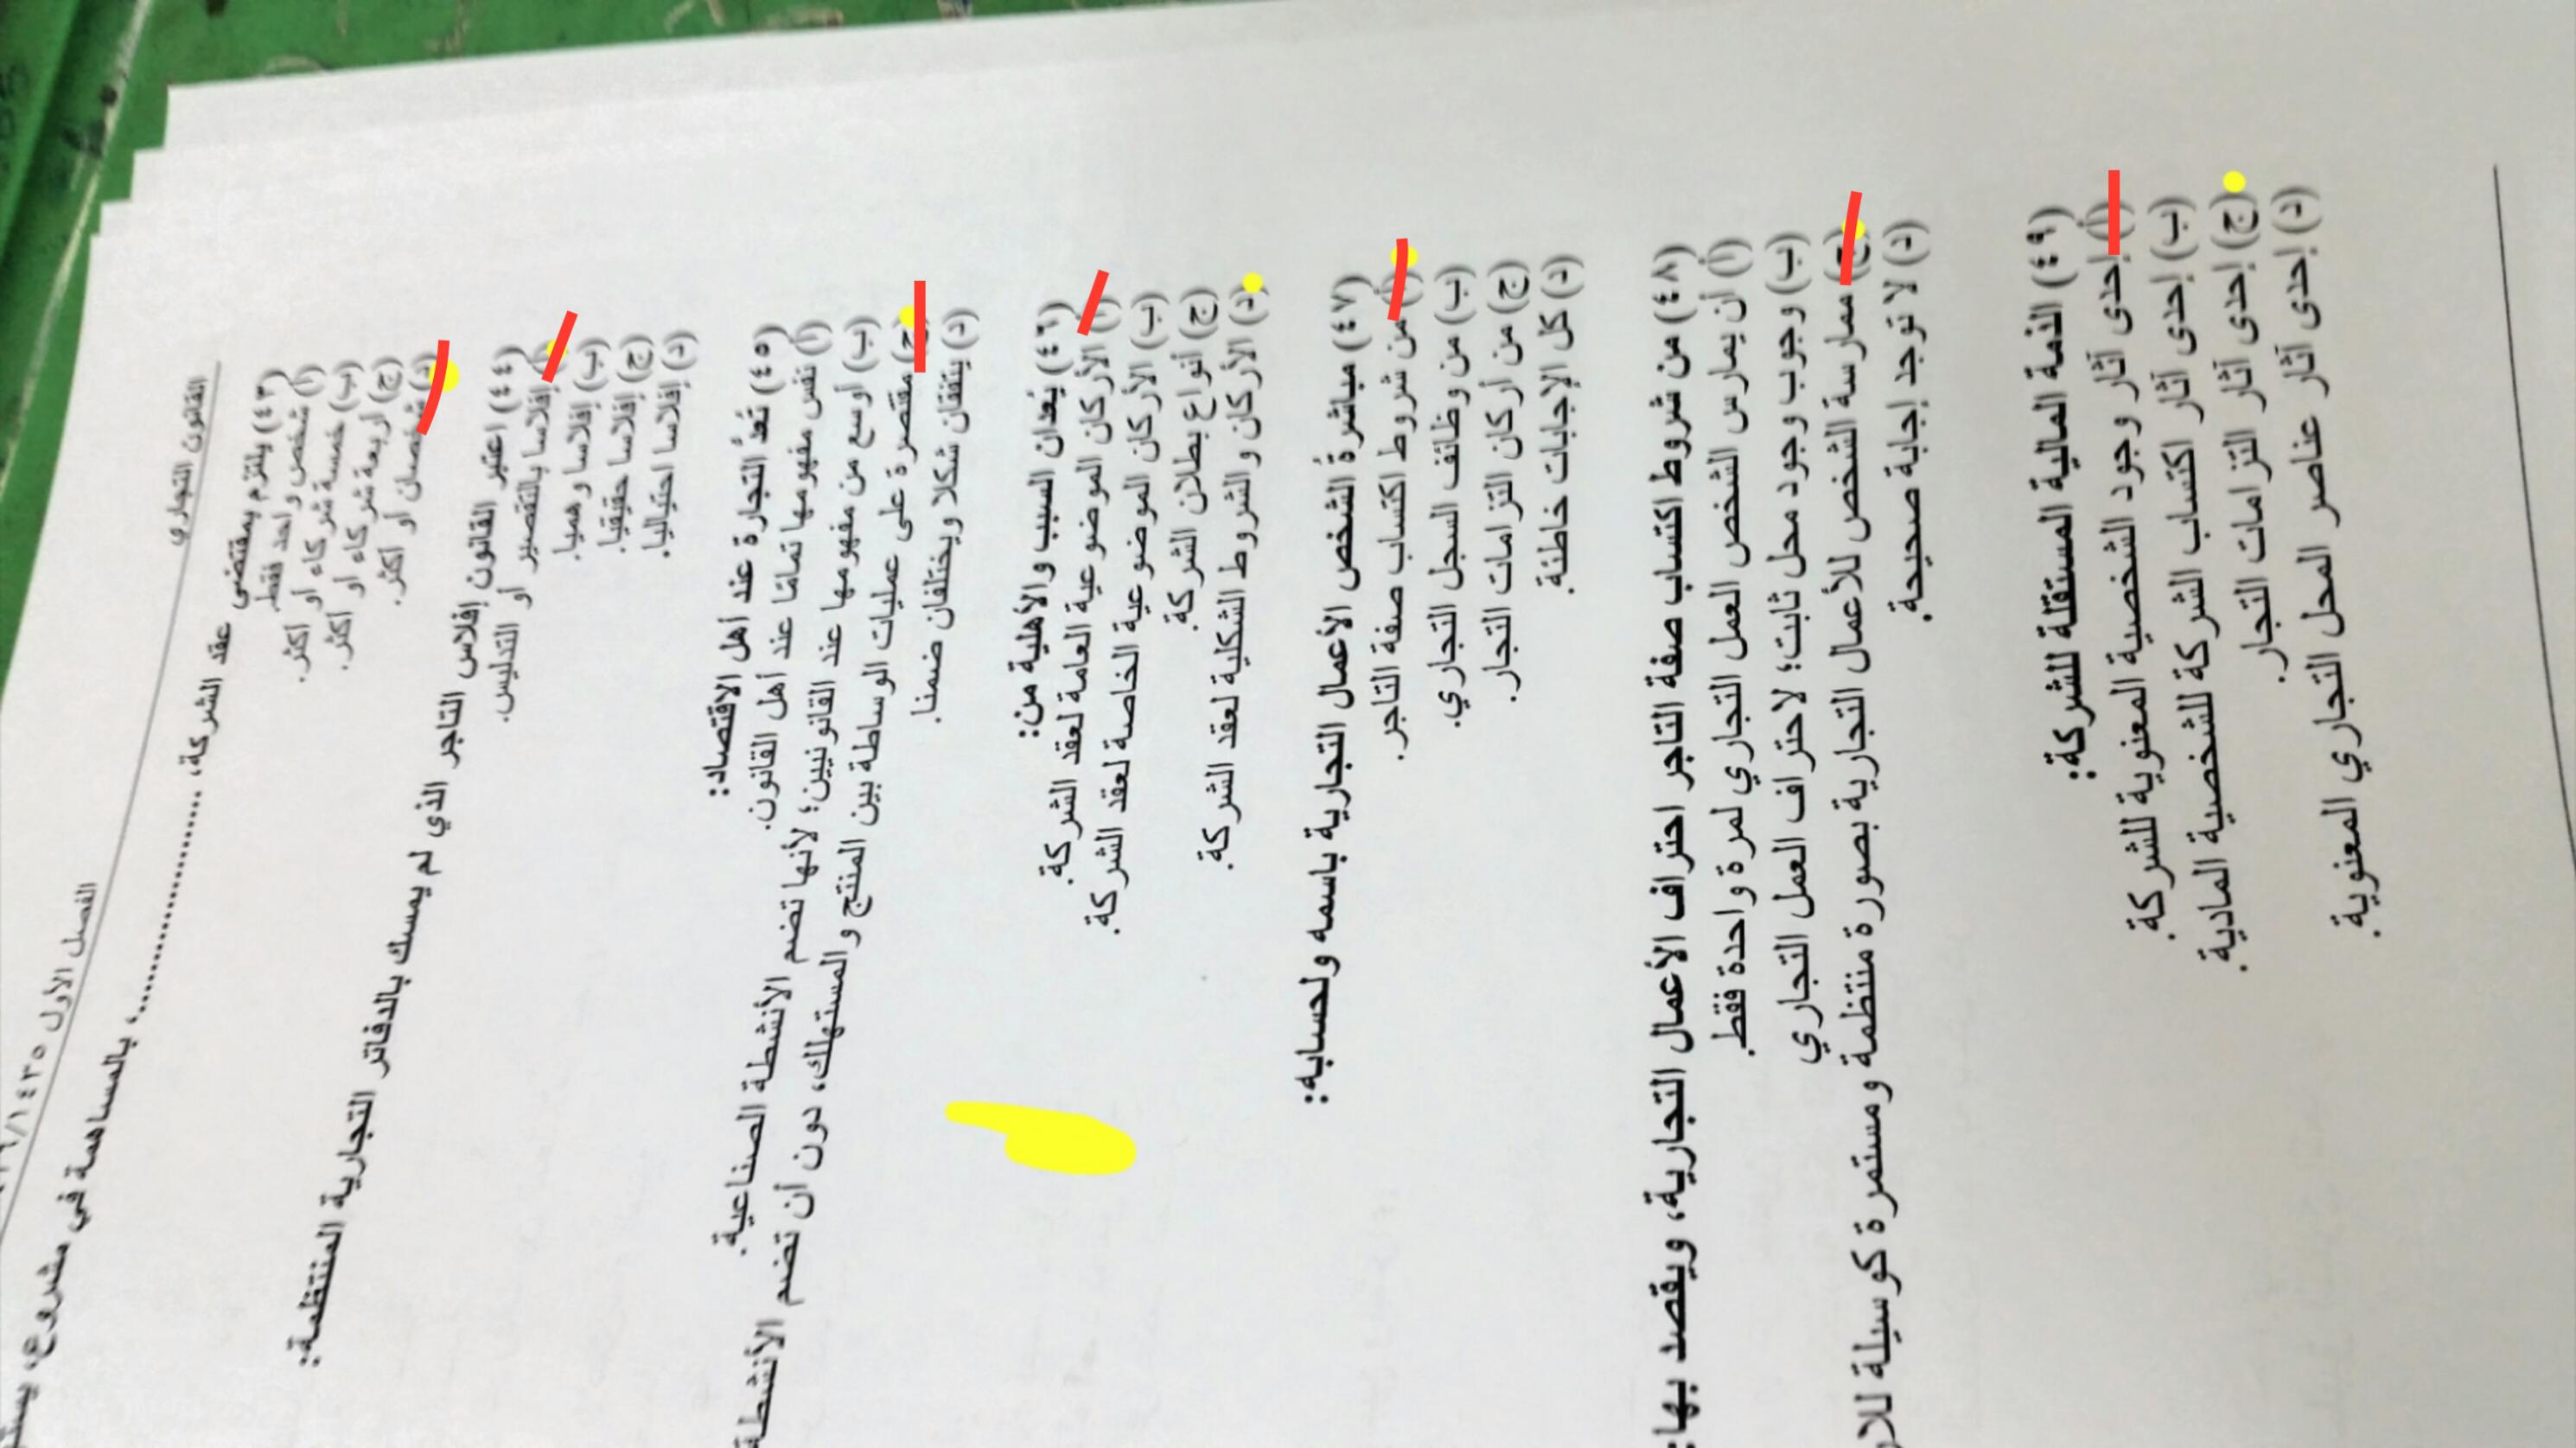 القانون التجاري
الفصل الأول ١٤٣٥/
(٤٣) يلتزم بمقتضى عقد الشركة، ..................، بالمساهمة في مشروع،
(أ) شخص واحد فقط.
(ب) خمسة شركاء أو أكثر.
(ج) أربعة شركاء أو أكثر.
(د) شخصان أو أكثر.
(٤٤) اعتبر القانون إفلاس التاجر الذي لم يمسك بالدفاتر التجارية المنتظمة:
(أ) إفلاسا بالتقصير أو التدليس.
(ب) إفلاسا وهميا.
(ج) إفلاسا حقيقيا.
(د) إفلاسا احتياليا.
(٤٥) تُعَدُّ التجارة عند أهل الاقتصاد:
(أ) نفس مفهومها تمامًا عند أهل القانون.
(ب) أوسع من مفهومها عند القانونيين؛ لأنها تضم الأنشطة الصناعية.
(ج) مقتصرة على عمليات الوساطة بين المنتج والمستهلك، دون أن تضم الأنشطة
(د) يتفقان شكلا ويختلفان ضمنا.
(٤٦) يُعدان السبب والأهلية من:
(أ) الأركان الموضوعية العامة لعقد الشركة.
(ب) الأركان الموضوعية الخاصة لعقد الشركة.
(ج) أنواع بطلان الشركة.
(د) الأركان والشروط الشكلية لعقد الشركة.
(٤٧) مباشرةُ الشخص الأعمال التجارية باسمه ولحسابه:
(أ) من شروط اكتساب صفة التاجر.
(ب) من وظائف السجل التجاري.
(ج) من أركان التزامات التجار.
(د) كل الإجابات خاطئة.
(٤٨) من شروط اكتساب صفة التاجر احتراف الأعمال التجارية، ويقصد بها:
(أ) أن يمارس الشخص العمل التجاري لمرة واحدة فقط.
(ب) وجوب وجود محل ثابت؛ لاحتراف العمل التجاري
(ج) ممارسة الشخص للأعمال التجارية بصورة منتظمة ومستمرة كوسيلة
(د) لا توجد إجابة صحيحة.
(٤٩) الذمة المالية المستقلة للشركة:
(أ) إحدى آثار وجود الشخصية المعنوية للشركة.
(ب) إحدى آثار اكتساب الشركة للشخصية المادية.
(ج) إحدى آثار التزامات التجار.
(د) إحدى آثار عناصر المحل التجاري المعنوية.